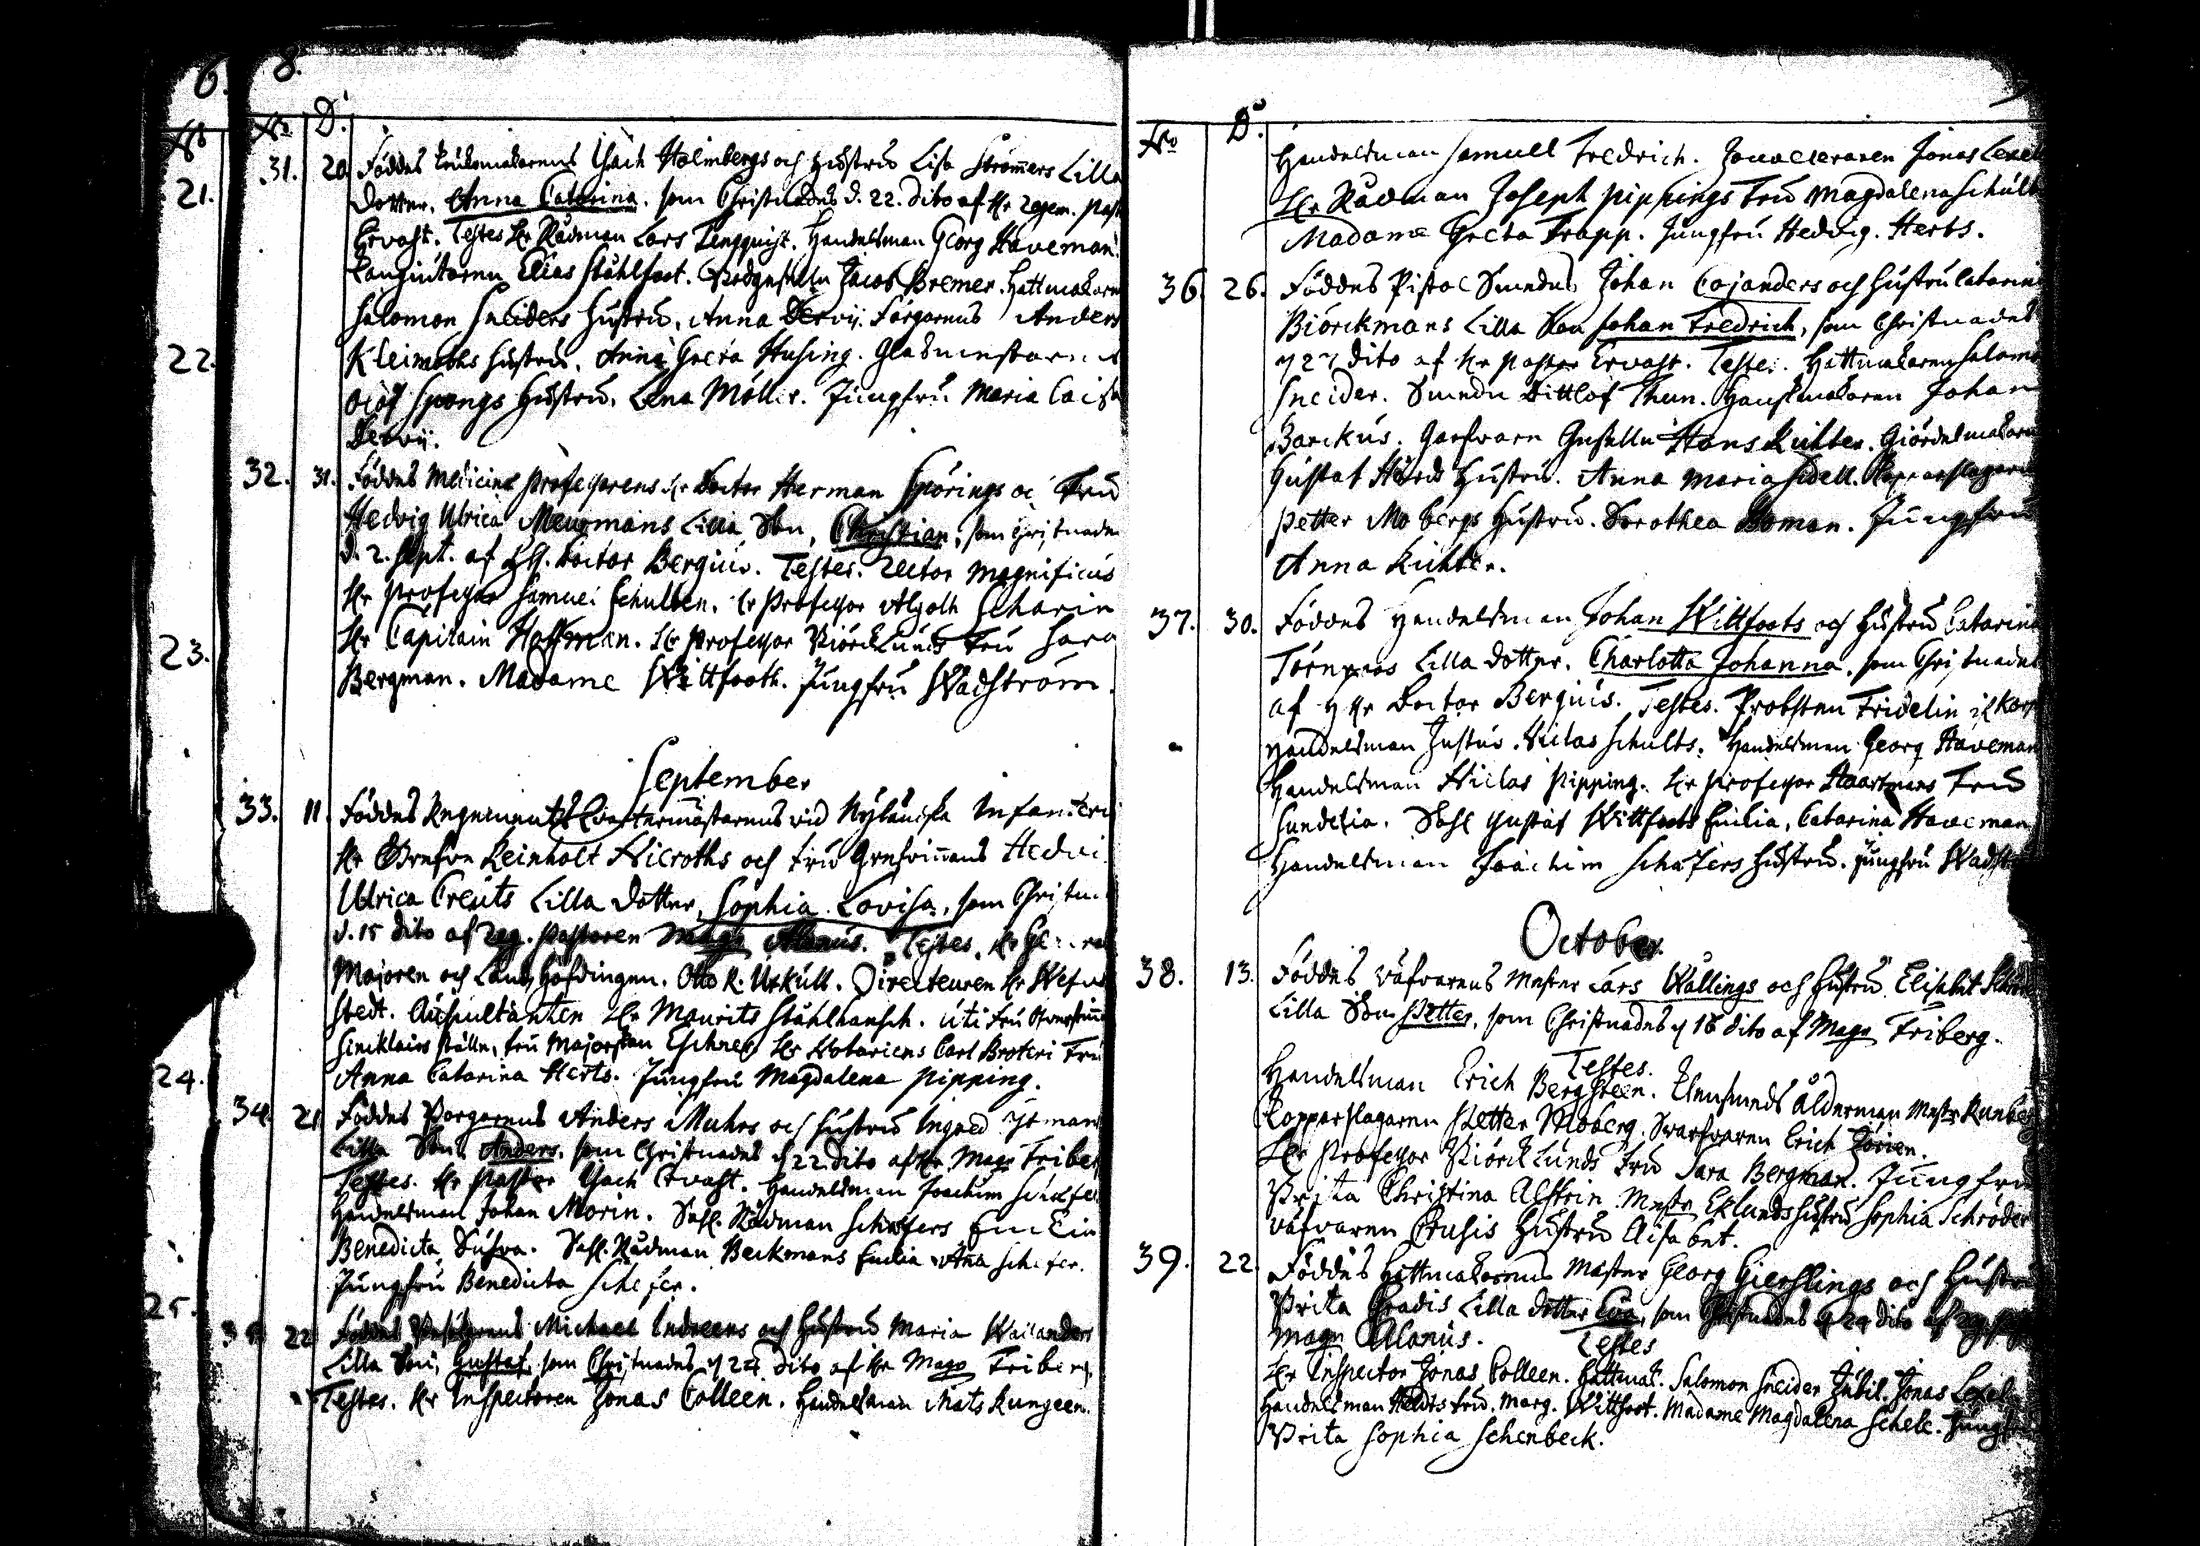 6. 8.
No No D.
21.
22.
23.
24.
25.
31. 20. Föddes Isach Holmbergs och Hustru Lisa Strömers Lilla
Dotter. Anna Catarina. som Christnades d. 22. dito af Hr Regem. Past
Ervast. Testes Hr Rådman Lars Handelsman Georg Haveman.
Elias Ståhlfoot. Jacob Bremer. Hattmakaren
Salomon Sneiders Hustru. Anna Dervij. Färgarens Anders
Hustru. Anna Greta Husing. Glasmestarens
Olof Spongs Hustru. Lena Möller. Jungfru Maria Caisa
Dervij.
32. 31. Föddes Medicinæ Professorens Hr Doctor Herman Spörings oc Fru
Hedvig Ulrica Meurmans Lilla Son, Christian, som Christnades
d. 2. Sept. af Doctor Bergius. Testes. Rector Magnificus
Hr Professor Samuel Schulten. Hr Professor Algoth Scharin
Hr Capitain Hoffman. Hr Professor Biörcklunds Fru Sara
Bergman. Madame Wittfooth. Jungfru Wadström.
September
33. 11. Föddes Regements Qvartermästarens vid Nyländska Infanteri
Hr Grefve Reinholt Nieroths och Fru Grefvinnans Hedvi
Ulrica Creuts Lilla Dotter, Sophia Lovisa, som Christn
d. 15 dito af Reg. Pastoren Mag. Alanus. Testes. Hr General
Majoren och Landshöfdingen. Otto R. Uxküll. Directeuren Hr Wefve
stedt. Auscultanten Hr Maurits Ståhlhansch. uti Fru
Sincklairs ställe, Fru Majorskan Hr Notariens Carl Broteri Fru
Anna Catarina Herts. Jungfru Magdalena Pipping.
34. 21. Föddes Borgarens Anders Muhrs och Hustru Ingred
Lilla Son. Anders. som Christnades d 22 dito af Hr. Mag. Friber
Testes. Hr Pastor Isach Ervast. Handelsman Joachim Schäfer
Handelsman Johan Morin. Sahl. Rådman Schäfers Enckia
Benedicta Sahl. Rådman Beckmans Enckia Anna Schefer.
Jungfru Benedicta Schefer.
35. 22. Föddes Michael Indreens och Hustru Maria Wailanders
Lilla Son, Gustaf, som Christnades d 24 dito af Hr Mag. Friberg.
Testes. Hr Inspectoren Jonas Colleen. Handelsman Mats Rungeen.
No D.
Handelsman Samuell Fredrich. Jouveleraren Jonas Lexel
Hr Rådman Joseph Pippings Fru Magdalena Schult
Madame Greta Trapp. Jungfru Hedvig. Herts.
36. 26. Föddes Pistol Smedens Johan Cajanders och Hustru Catarina
Biörckmans Lilla Son Johan Fredrich, som Christnades
d 27 dito af Hr Pastor Ervast. Testes. Hattmakaren Salomo
Sneider. Smeden Dittlof Thun. Handskmakaren Johan
Barckus. Garfvare Gesellen Hans Richter. Giördelmakaren
Gustaf Hustru. Anna Maria Sidell. Kopparslagaren
Petter Mobergs Hustru. Dorothea Boman. Jungfru
Anna Richter.
37. 30. Föddes Handelsman Johan Wittfoots och Hustru Catarina
Törnroos Lilla Dotter. Charlotta Johanna. som Christnades
af Hr Doctor Bergius. Testes. Probsten Fridelin
Handelsman Justus. Niclas Schults. Handelsman Georg Haveman
Handelsman Niclas Pipping. Hr Professor Haartmans Fru
Sundelia. Sahl Gustaf Wittfoots Enckia, Catarina Haveman
Handelsman Joachim Schäfers Hustru. Jungfru Wadst
October
38. 13. Föddes Väfvarens Mester Lars Wallings och Hustru. Elisabet
Lilla Son Petter, som Christnades d 16 dito af Mag. Friberg.
Testes.
Handelsman Erich Bergsteen. Ålderman Mestr Runbe
Kopparslagaren Petter Moberg. Svarfvaren Erich
Hr Professor Biörcklunds Fru Sara Bergman. Jungfru
Brita Christina Alstrin. Mestr Eklunds Hustru Sophia Schröder
Väfvaren Crusis Hustru Elisabet.
39. 22. Föddes Hattmakarens Mäster Georg Gierslings och Hustru
Brita Gradis Lilla Dotter Eva, som Christnades d 24 dito af Reg.
Mag. Alanus. Testes
Hr Inspector Jonas Colleen. Hattmak. Salomon Sneider Jubil. Jonas Lexel
Handelsman Fru. Marg. Wittfoot. Madame Magdalena Schele. Jungfru
Brita Sophia Schenbeck.